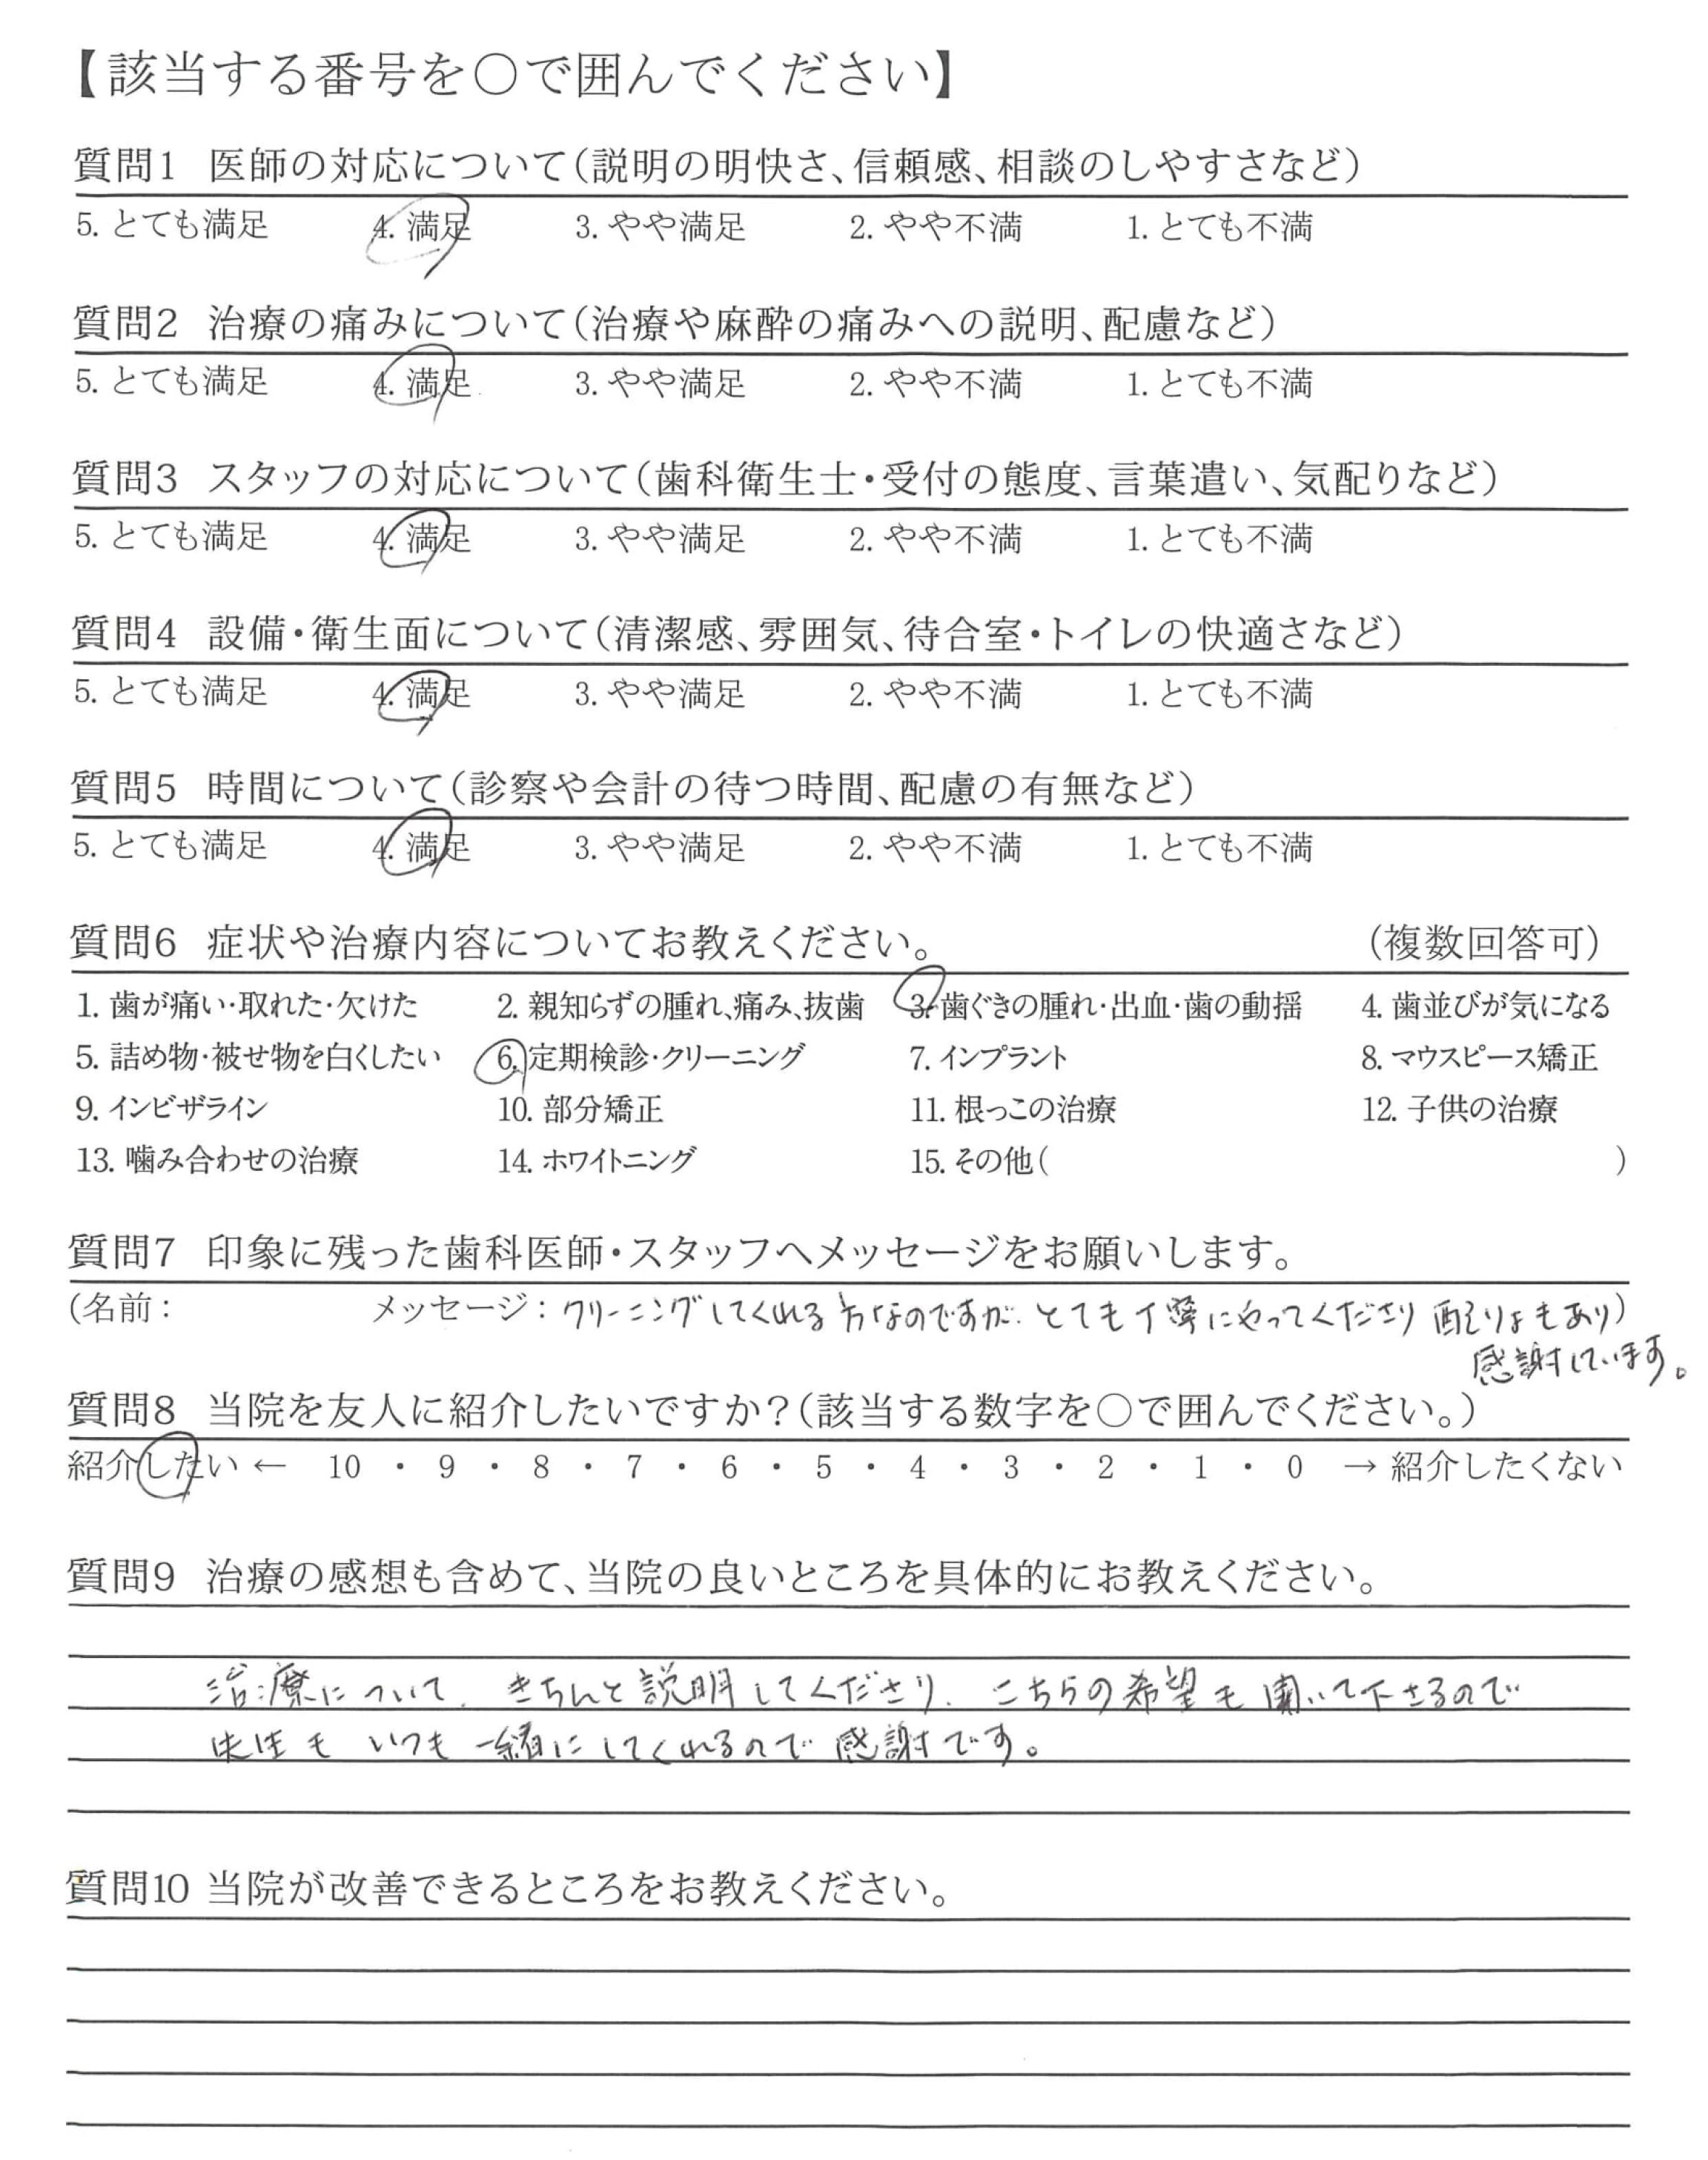 【該当する番号を○で囲んでください】
質問1 医師の対応について(説明の明快さ、信頼感、相談のしやすさなど)
5. とても満足 4. 満足 3. やや満足 2. やや不満 1. とても不満
質問2 治療の痛みについて(治療や麻酔の痛みへの説明、配慮など)
5. とても満足 4. 満足 3. やや満足 2. やや不満 1. とても不満
質問3 スタッフの対応について(歯科衛生士・受付の態度、言葉遣い、気配りなど)
5. とても満足 4. 満足 3. やや満足 2. やや不満 1. とても不満
質問4 設備・衛生面について(清潔感、雰囲気、待合室・トイレの快適さなど)
5. とても満足 4. 満足 3. やや満足 2. やや不満 1. とても不満
質問5 時間について(診察や会計の待つ時間、配慮の有無など)
5. とても満足 4. 満足 3. やや満足 2. やや不満 1. とても不満
質問6 症状や治療内容についてお教えください。 (複数回答可)
1. 歯が痛い・取れた・欠けた 2. 親知らずの腫れ、痛み、抜歯 3. 歯ぐきの腫れ・出血・歯の動揺 4. 歯並びが気になる
5. 詰め物・被せ物を白くしたい 6. 定期検診・クリーニング 7. インプラント 8. マウスピース矯正
9. インビザライン 10. 部分矯正 11. 根っこの治療 12. 子供の治療
13. 噛み合わせの治療 14. ホワイトニング 15. その他( )
質問7 印象に残った歯科医師・スタッフへメッセージをお願いします。
(名前: メッセージ: クリーニングしてくれる方なのですが、とても丁寧にやってくださり 配りょもあり)
感謝しています。
質問8 当院を友人に紹介したいですか?(該当する数字を○で囲んでください。)
紹介したい ← 10 ・ 9 ・ 8 ・ 7 ・ 6 ・ 5 ・ 4 ・ 3 ・ 2 ・ 1 ・ 0 → 紹介したくない
質問9 治療の感想も含めて、当院の良いところを具体的にお教えください。
治療について、きちんと説明してくださり、こちらの希望も聞いて下さるので
先生も いつも 一緒にしてくれるので 感謝です。
質問10 当院が改善できるところをお教えください。